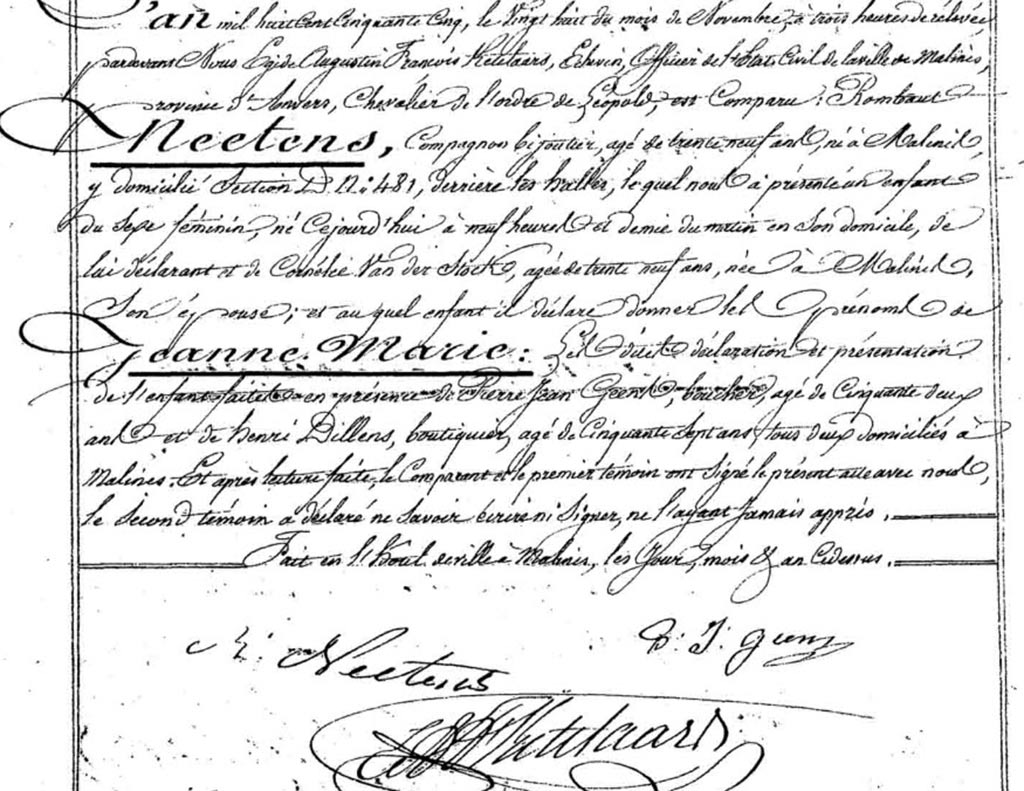 L'an mil huit Cent Cinquante Cinq, le Vingt huit du mois de Novembre, à trois heures de rélevée,
pardevant Nous Egide Augustin François Ketelaars, Echevin, Officier de l'Etat Civil de la ville de Malines,
Province d'Anvers, Chevalier de l'ordre de Léopold, est Comparu: Rombaut
Neetens, Compagnon bijoutier, agé de trente neuf ans, né à Malines,
y domicilié Section D. N: 481, derrière les halles, le quel nous à présenté un enfant
du sexe féminin, né Cejourd'hui à neuf heures et demie du matin en Son domicile, de
lui déclarant et de Cornélie Van der Stock, agée de trente neuf ans, née à Malines,
Son épouse; et au quel enfant il déclare donner les Prénoms de
Jeanne Marie: Les dites déclaration et présentation
de l'enfant faites en présence de Pierre Jean Geens, boucher, agé de Cinquante deux
ans et de henri Dillens, boutiquier, agé de Cinquante Sept ans, tous deux domiciliés à
Malines. Et après lecture faite, le Comparant et le premier témoin ont Signé le présent acte avec nous,
le Second témoin a déclaré ne Savoir écrire ni Signer, ne l'ayant Jamais appris.
Fait en l'hôtel de ville à Malines, les Jour, mois & an Cidessus.
R: Neetens
P: J: Geens
Ketelaars